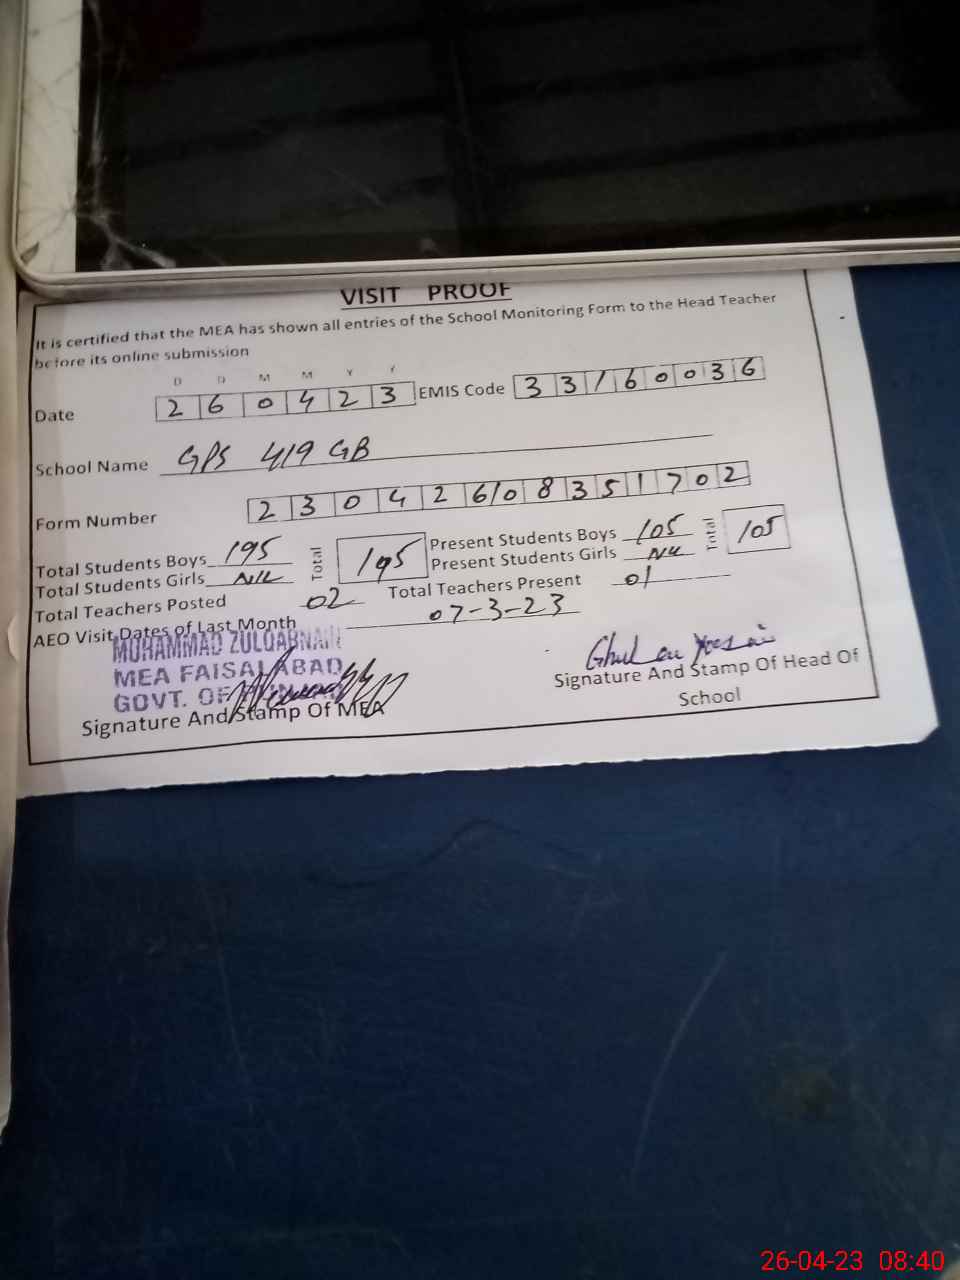 VISIT PROOF
It is certified that the MEA has shown all entries of the School Monitoring Form to the Head Teacher
before its online submission
D D M M Y Y
Date 260423 EMIS Code 33160036
School Name GPS 419 GB
Form Number 23042608351702
Total Students Boys 195 Total 195 Present Students Boys 105 Total 105
Total Students Girls Nil Present Students Girls Nil
Total Teachers Posted 02 Total Teachers Present 01
AEO Visit Dates of Last Month 07-3-23
MUHAMMAD ZULQARNAIN
MEA FAISALABAD
GOVT. OF
Signature And Stamp Of MEA
Signature And Stamp Of Head Of
School
26-04-23 08:40